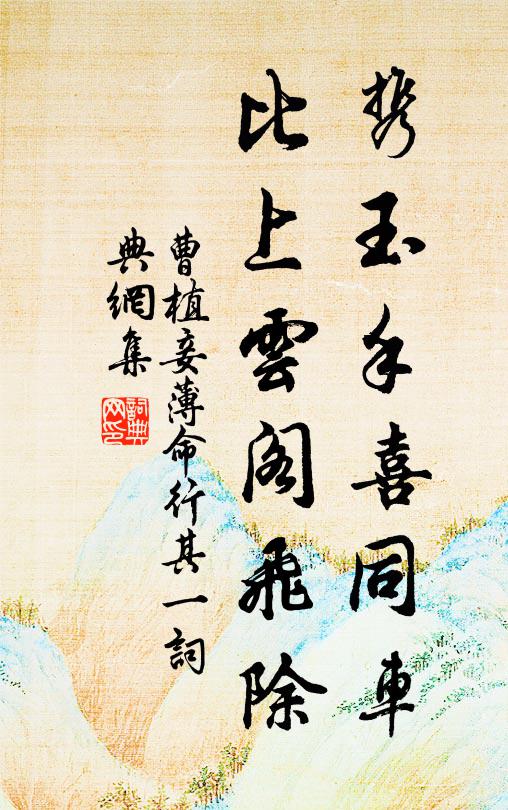 携玉手喜同車
比上雲閣飛除
曹植妾薄命行其一詞
典網集
詞典
网印